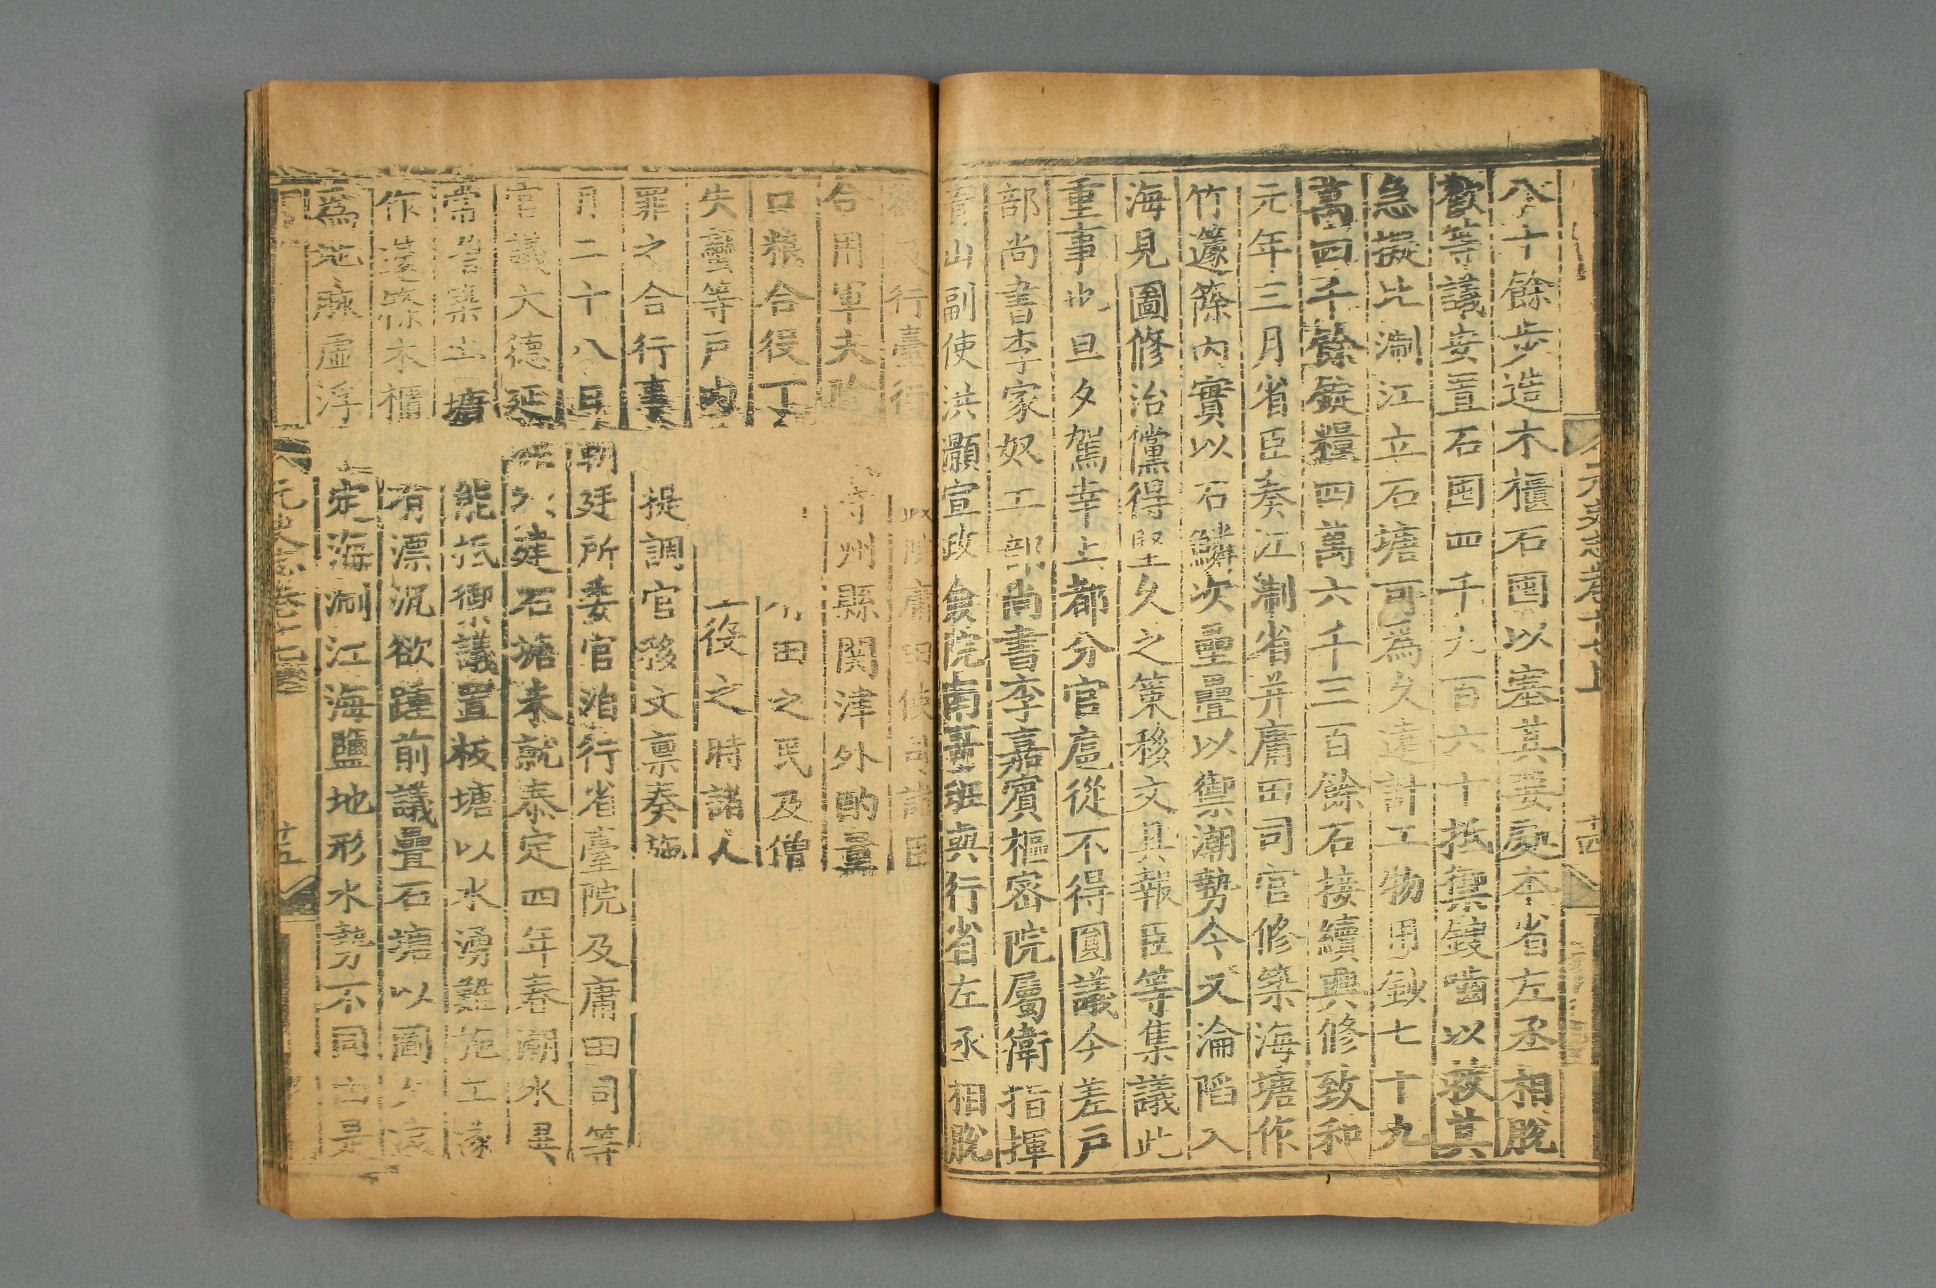 元史志卷十七上
十四
八十餘步造木櫃石囤以塞其要處本省左丞相脫
歡等議安置石囤四千九百六十抵禦鎪嚙以救其
急擬比浙江立石塘可爲久遠計工物用鈔七十九
萬四千餘錠糧四萬六千三百餘石接續興修致和
元年三月省臣奏江浙省并庸田司官修築海塘作
竹籧篨内實以石鱗次壘疊以禦潮勢今又淪陷入
海見圖修治儻得堅久之策移文具報臣等集議此
重事也旦夕駕幸上都分官扈從不得圓議今差戶
部尚書李家奴工部尚書李嘉賓樞密院屬衛指揮
青山副使洪灝宣政僉院南臺班與行省左丞相脫
行臺行 庸田使司諸臣
合用軍夫除 等州縣関津外酌量
口粮合役丁 田之民及僧
失蠻等戶内 役之時諸人
罪之合行事 提調官移文禀奏施
月二十八日 朝廷所委官治行省臺院及庸田司等
官議大德延 建石塘未就泰定四年春潮水異
常 塘 能抵禦議置板塘以水湧難施工遂
作 木櫃 有漂沉欲踵前議疊石塘以圖
爲 虛浮 定海浙江海鹽地形水勢不同
元史志卷十七
十五